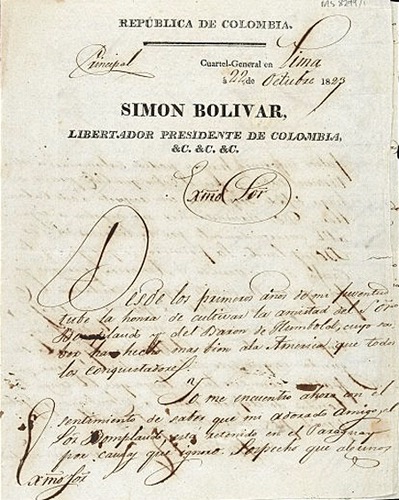 MS 8299/1
REPÚBLICA DE COLOMBIA.
Principal
Cuartel-General en Lima
á 22 de Octubre 1823
SIMON BOLIVAR,
LIBERTADOR PRESIDENTE DE COLOMBIA,
&C. &C. &C.
Exmo Sor
Desde los primeros años de mi juventud
tube la honra de cultivar la amistad del Sor
Bompland y del Baron de Humbold, cuyo sa
ber ha hecho mas bien ala America que todos
los conquistadores.
Yo me encuentro ahora con el
sentimiento de saber que mi adorado Amigo el
Sor Bompland está retenido en el Paraguay
por causas que ignoro. Sospecho que algunos
Exmo Sor